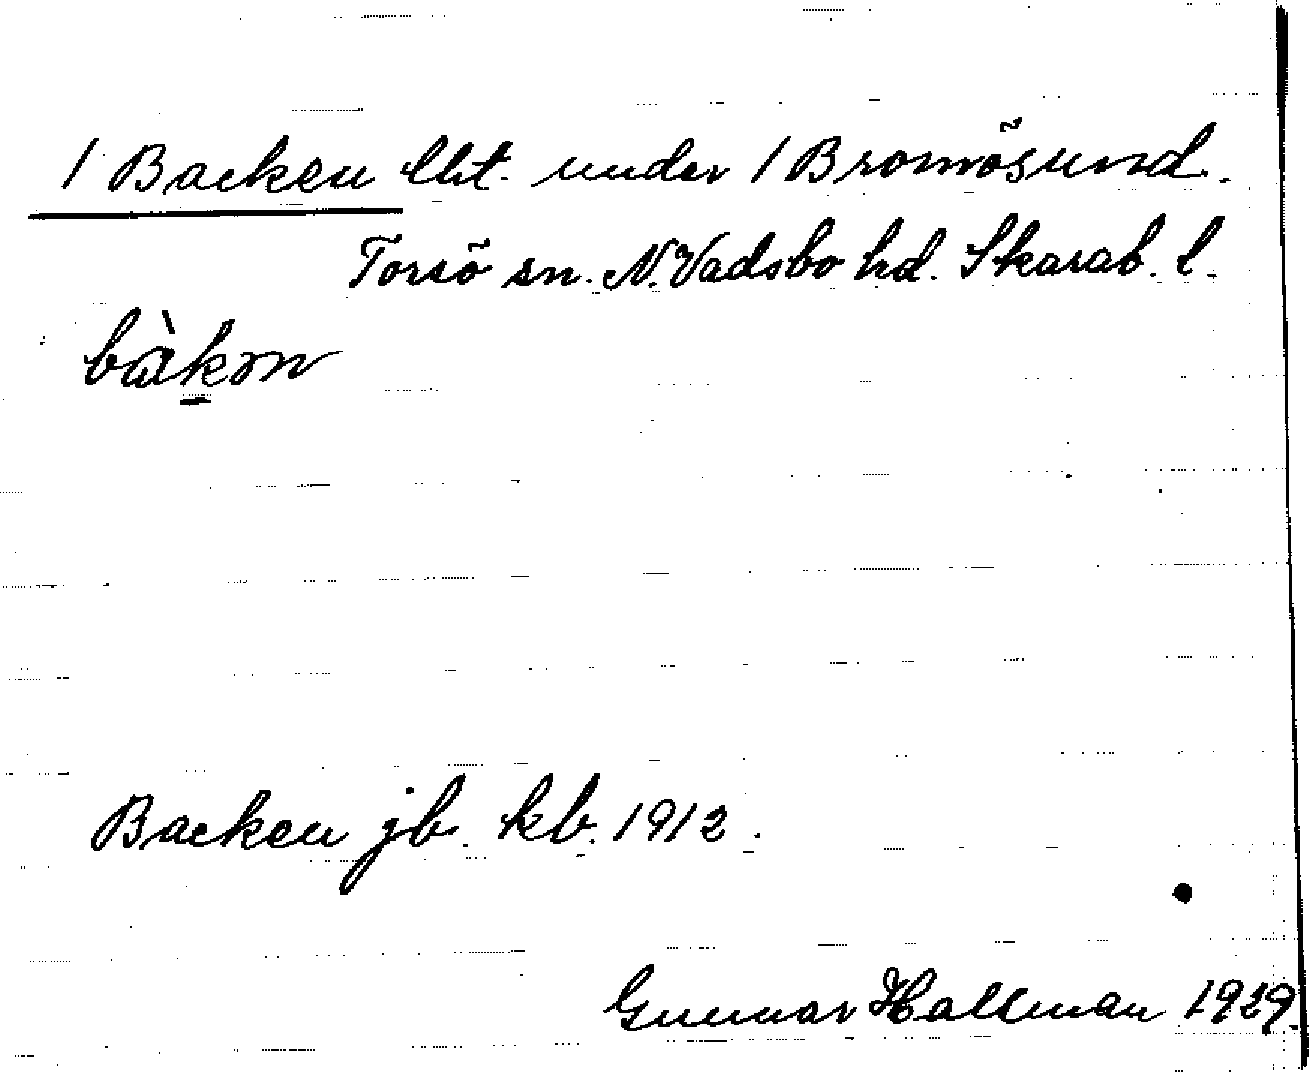 1 Backen lht. under 1 Bromösund.
Torsö sn. N. Vadsbo hd. Skarab. l.
bàkən
Backen jb. kb. 1912.
Gunnar Hallman 1929.